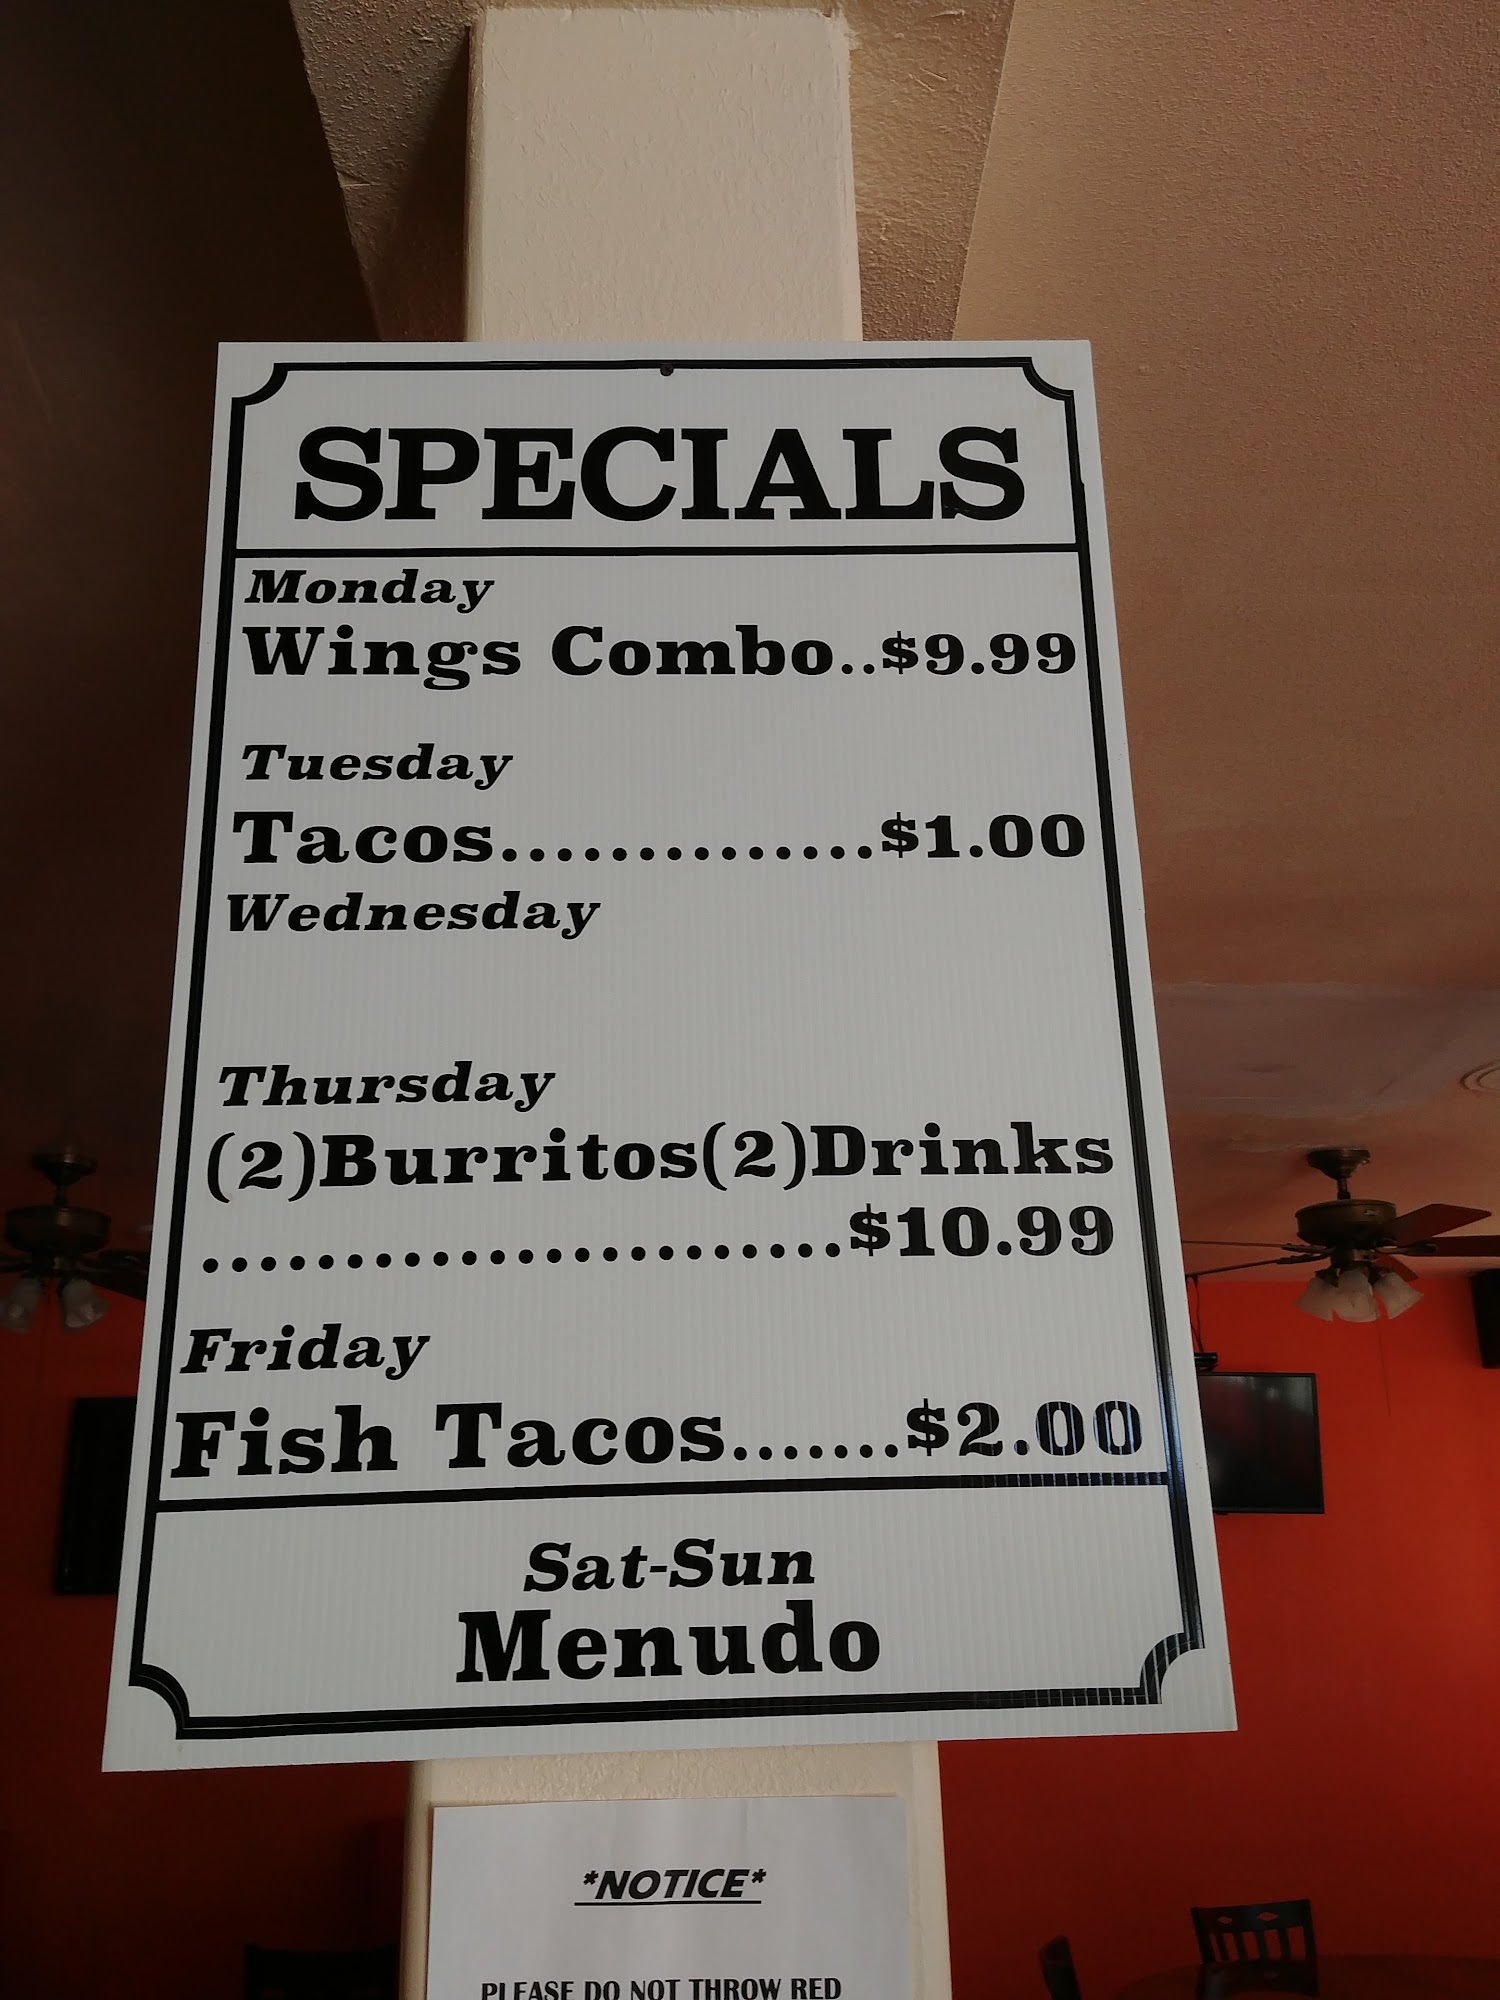 SPECIALS
Monday
Wings Combo..$9.99
Tuesday
Tacos..............$1.00
Wednesday
Thursday
(2)Burritos(2)Drinks
.......................$10.99
Friday
Fish Tacos.......$2.00
Sat-Sun
Menudo
*NOTICE*
PLEASE DO NOT THROW RED